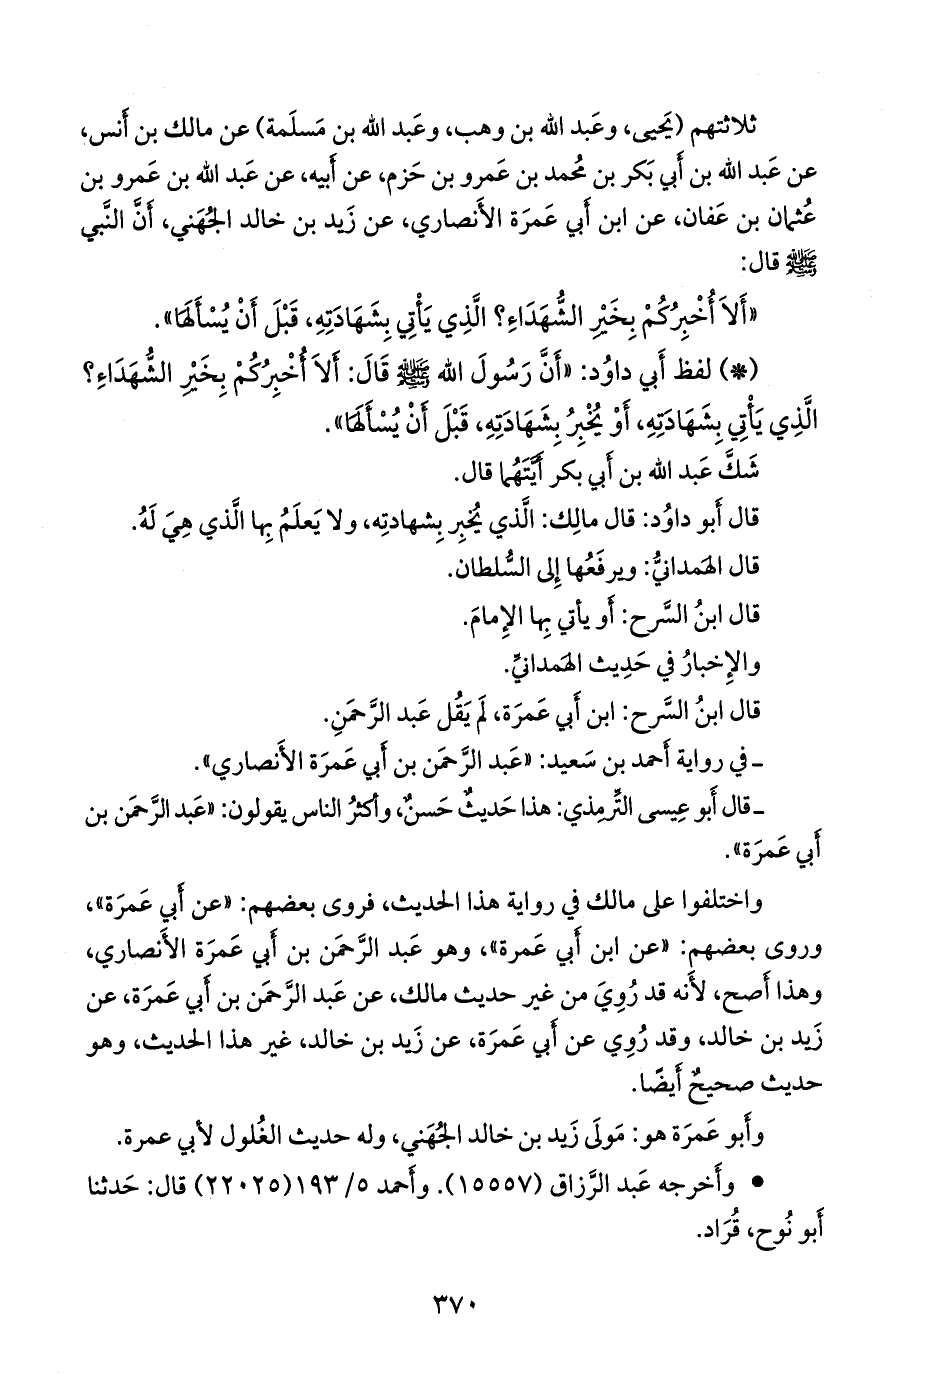 ثلاثتهم (يَحيى، وعَبد الله بن وهب، وعَبد الله بن مَسلَمة) عن مالك بن أَنس،
عن عَبد الله بن أَبي بَكر بن مُحمد بن عَمرو بن حَزم، عن أَبيه، عن عَبد الله بن عَمرو بن
عُثمان بن عَفان، عن ابن أَبي عَمرَة الأَنصاري، عن زَيد بن خالد الجُهَني، أَنَّ النَّبي
ﷺ قال:
«أَلاَ أُخْبِرُكُمْ بِخَيْرِ الشُّهَدَاءِ؟ الَّذِي يَأْتِي بِشَهَادَتِهِ، قَبْلَ أَنْ يُسْأَلَهَا».
(*) لفظ أَبي داوُد: «أَنَّ رَسُولَ الله ﷺ قَالَ: أَلاَ أُخْبِرُكُمْ بِخَيْرِ الشُّهَدَاءِ؟
الَّذِي يَأْتِي بِشَهَادَتِهِ، أَوْ يُخْبِرُ بِشَهَادَتِهِ، قَبْلَ أَنْ يُسْأَلَهَا».
شَكَّ عَبد الله بن أَبي بكر أَيَّتَهُما قال.
قال أَبو داوُد: قال مالِك: الَّذي يُخبِر بِشهادتِه، ولا يَعلَمُ بِها الَّذي هِيَ لَهُ.
قال الهَمدانيُّ: ويرفَعُها إِلى السُّلطان.
قال ابنُ السَّرح: أَو يأتي بِها الإِمامَ.
والإِخبارُ في حَدِيث الهَمدانيِّ.
قال ابنُ السَّرح: ابن أَبي عَمرَة، لَم يَقُل عَبد الرَّحمَنِ.
ـ في رواية أَحمد بن سَعيد: «عَبد الرَّحمَن بن أَبي عَمرَة الأَنصاري».
ـ قال أَبو عِيسى التِّرمِذي: هذا حَديثٌ حَسنٌ، وأَكثرُ الناس يقولون: «عَبد الرَّحمَن بن
أَبي عَمرَة».
واختلفوا على مالك في رواية هذا الحديث، فروى بعضهم: «عن أَبي عَمرَة»،
وروى بعضهم: «عن ابن أَبي عَمرة»، وهو عَبد الرَّحمَن بن أَبي عَمرَة الأَنصاري،
وهذا أَصح، لأَنه قد رُوِيَ من غير حديث مالك، عن عَبد الرَّحمَن بن أَبي عَمرَة، عن
زَيد بن خالد، وقد رُوِي عن أَبي عَمرَة، عن زَيد بن خالد، غير هذا الحديث، وهو
حديث صحيحٌ أَيضًا.
وأَبو عَمرَة هو: مَولَى زَيد بن خالد الجُهَني، وله حديث الغُلول لأبي عمرة.
• وأَخرجه عَبد الرَّزاق (١٥٥٥٧). وأَحمد ٥/ ١٩٣(٢٢٠٢٥) قال: حَدثنا
أَبو نُوح، قُرَاد.
٣٧٠